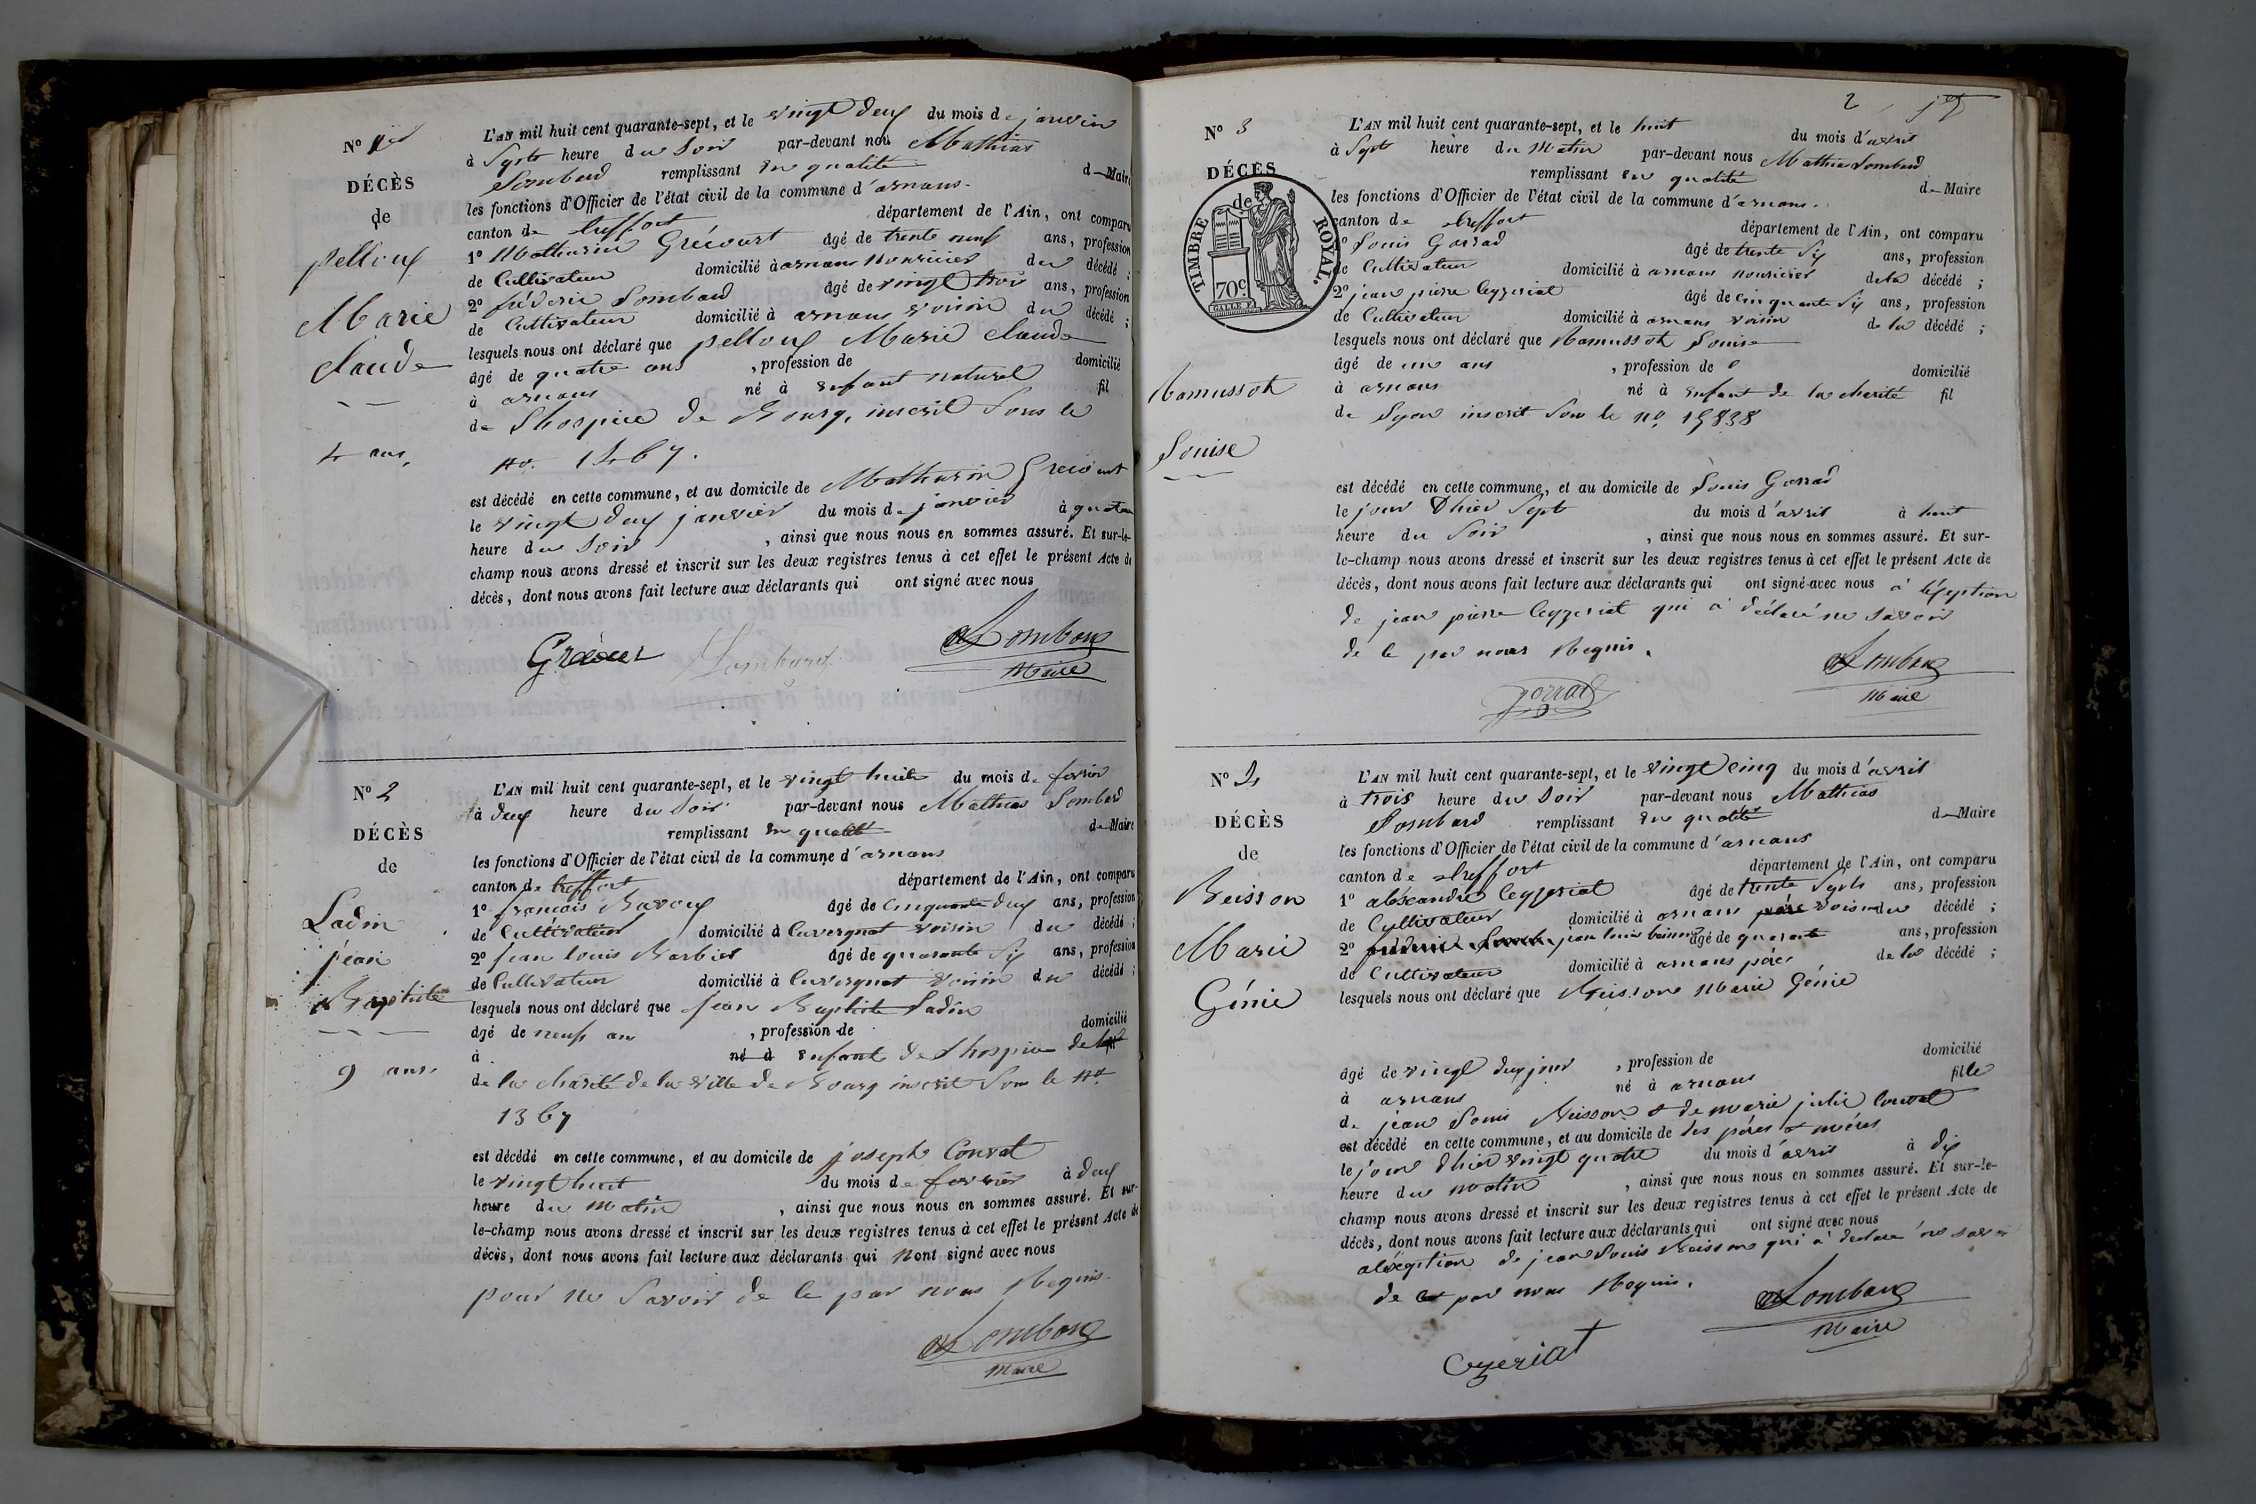 N° 1er
DÉCÈS
de
pelloux
Marie
Claude
4 ans.
L'AN mil huit cent quarante-sept, et le vingt deux du mois de janvier
à Sept heure du Soir par-devant nous Mathias
Lombard remplissant en qualité de Maire
les fonctions d'Officier de l'état civil de la commune d'arnans.
canton de treffort département de l'Ain, ont comparu
1° Mathurin Grécourt âgé de trente neuf ans, profession
de Cultivateur domicilié à arnans nouricier du décédé ;
2° fréderic Lombard âgé de vingt trois ans, profession
de Cultivateur domicilié à arnans voisin du décédé ;
lesquels nous ont déclaré que pelloux Marie Claude
âgé de quatre ans , profession de domicilié
à arnans né à enfant naturel fil
de Lhospice de Bourg, inscrit Sous le
no. 1467.
est décédé en cette commune, et au domicile de Mathurin Grecourt
le vingt deux janvier du mois de janvier à quatre
heure du Soir , ainsi que nous nous en sommes assuré. Et sur-le-
champ nous avons dressé et inscrit sur les deux registres tenus à cet effet le présent Acte de
décès, dont nous avons fait lecture aux déclarants qui ont signé avec nous
Lombard
Maire
N° 2
DÉCÈS
de
Ladin
jean
Baptiste
9 ans.
L'AN mil huit cent quarante-sept, et le vingt huit du mois de fevrier
à deux heure du Soir par-devant nous Mathias Lombard
remplissant en qualité de Maire
les fonctions d'Officier de l'état civil de la commune d'arnans
canton de treffort département de l'Ain, ont comparu
1° francois Bavoux âgé de Cinquante deux ans, profession
de Cultivateur domicilié à Cuvergnat voisin du décédé ;
2° jean louis Barbier âgé de quarante Six ans, profession
de Cultivateur domicilié à Cuvergnat voisin du décédé ;
lesquels nous ont déclaré que jean Baptiste Ladin
âgé de neuf ans , profession de domicilié
à né à enfant de Lhospice de la
de la charité de la ville de Bourg inscrit Sous le no.
1367
est décédé en cette commune, et au domicile de joseph Convat
le vingt huit du mois de fevrier à deux
heure du Matin , ainsi que nous nous en sommes assuré. Et sur-
le-champ nous avons dressé et inscrit sur les deux registres tenus à cet effet le présent Acte de
décès, dont nous avons fait lecture aux déclarants qui nont signé avec nous
pour ne Savoir de le par nous Requis.
Lombard
Maire
2
N° 3
DÉCÈS
de
TIMBRE ROYAL.
70c
Ramussot
Louise
L'AN mil huit cent quarante-sept, et le huit du mois d'avril
à Sept heure du Matin par-devant nous Mathias Lombard
remplissant en qualité de Maire
les fonctions d'Officier de l'état civil de la commune d'arnans.
canton de treffort département de l'Ain, ont comparu
1° Louis Gorrad âgé de trente Six ans, profession
de Cultivateur domicilié à arnans nouricier de la décédé ;
2° jean pierre Ceyzeriat âgé de cinquante Six ans, profession
de Cultivateur domicilié à arnans voisin de la décédé ;
lesquels nous ont déclaré que Ramussot Louise
âgé de un ans , profession de domicilié
à arnans né à enfant de la charité fil
de Lyon inscrit Sous le no. 15838
est décédé en cette commune, et au domicile de Louis Gorrad
le jour Dhier Sept du mois d'avril à huit
heure du Soir , ainsi que nous nous en sommes assuré. Et sur-
le-champ nous avons dressé et inscrit sur les deux registres tenus à cet effet le présent Acte de
décès, dont nous avons fait lecture aux déclarants qui ont signé avec nous a léxeption
de jean pierre Ceyzeriat qui a déclaré ne savoir
de le par nous Requis.
Lombard
gorrad Maire
N° 4
DÉCÈS
de
Buisson
Marie
Génie
L'AN mil huit cent quarante-sept, et le vingt cinq du mois d'avril
à trois heure du Soir par-devant nous Mathias
Lombard remplissant en qualité de Maire
les fonctions d'Officier de l'état civil de la commune d'arnans
canton de treffort département de l'Ain, ont comparu
1° aléxandre Ceyzeriat âgé de trente Sept ans, profession
de Cultivateur domicilié à arnans voisin du décédé ;
2° jean louis buisson âgé de quarante ans, profession
de Cultivateur domicilié à arnans pére de la décédé ;
lesquels nous ont déclaré que Buisson Marie Génie
âgé de vingt deux jour , profession de domicilié
à arnans né à arnans fille
de jean Louis Buisson & de marie julie Convat
est décédé en cette commune, et au domicile de les péres & méres
le jour dhier vingt quatre du mois d'avril à dix
heure du matin , ainsi que nous nous en sommes assuré. Et sur-le-
champ nous avons dressé et inscrit sur les deux registres tenus à cet effet le présent Acte de
décès, dont nous avons fait lecture aux déclarants qui ont signé avec nous
aléxeption de jean Louis Buisson qui a déclaré ne savoir
de le par nous Requis.
Lombard
Maire
Cyzeriat